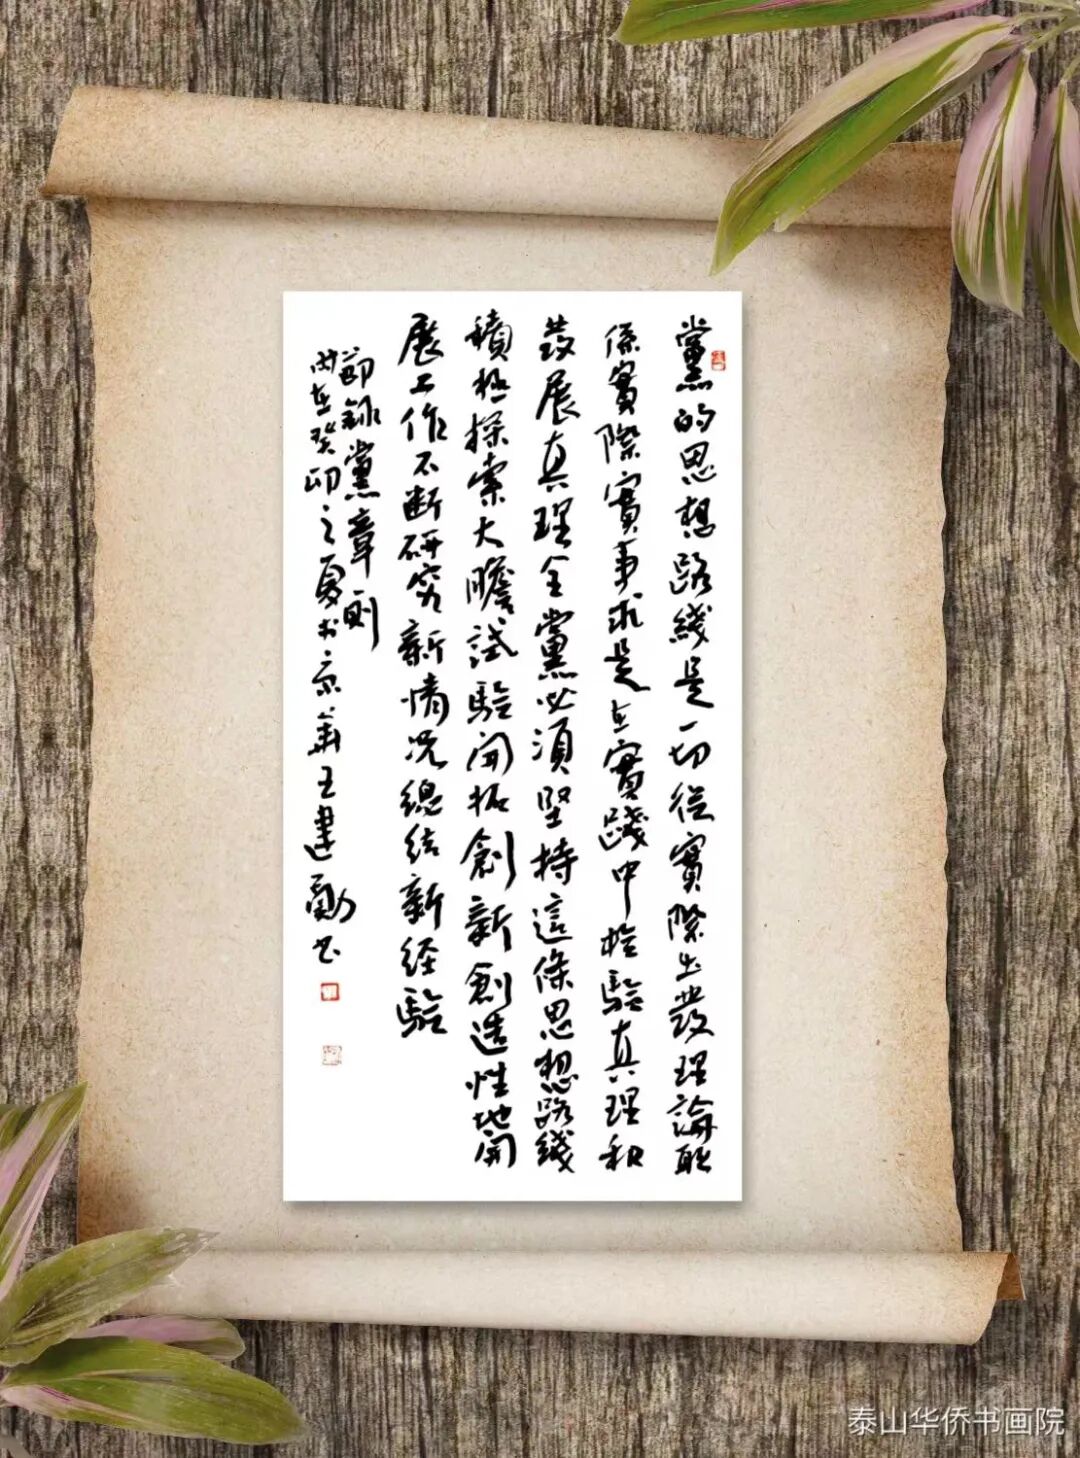 黨的思想路綫是一切從實際出發理論联
係實際實事求是在實踐中检驗真理和
發展真理全黨必須堅持這條思想路綫
積极探索大膽試驗開拓創新創造性地開
展工作不断研究新情况總结新经驗
節録黨章則
在癸卯之夏於京華王建勳书
泰山华侨书画院